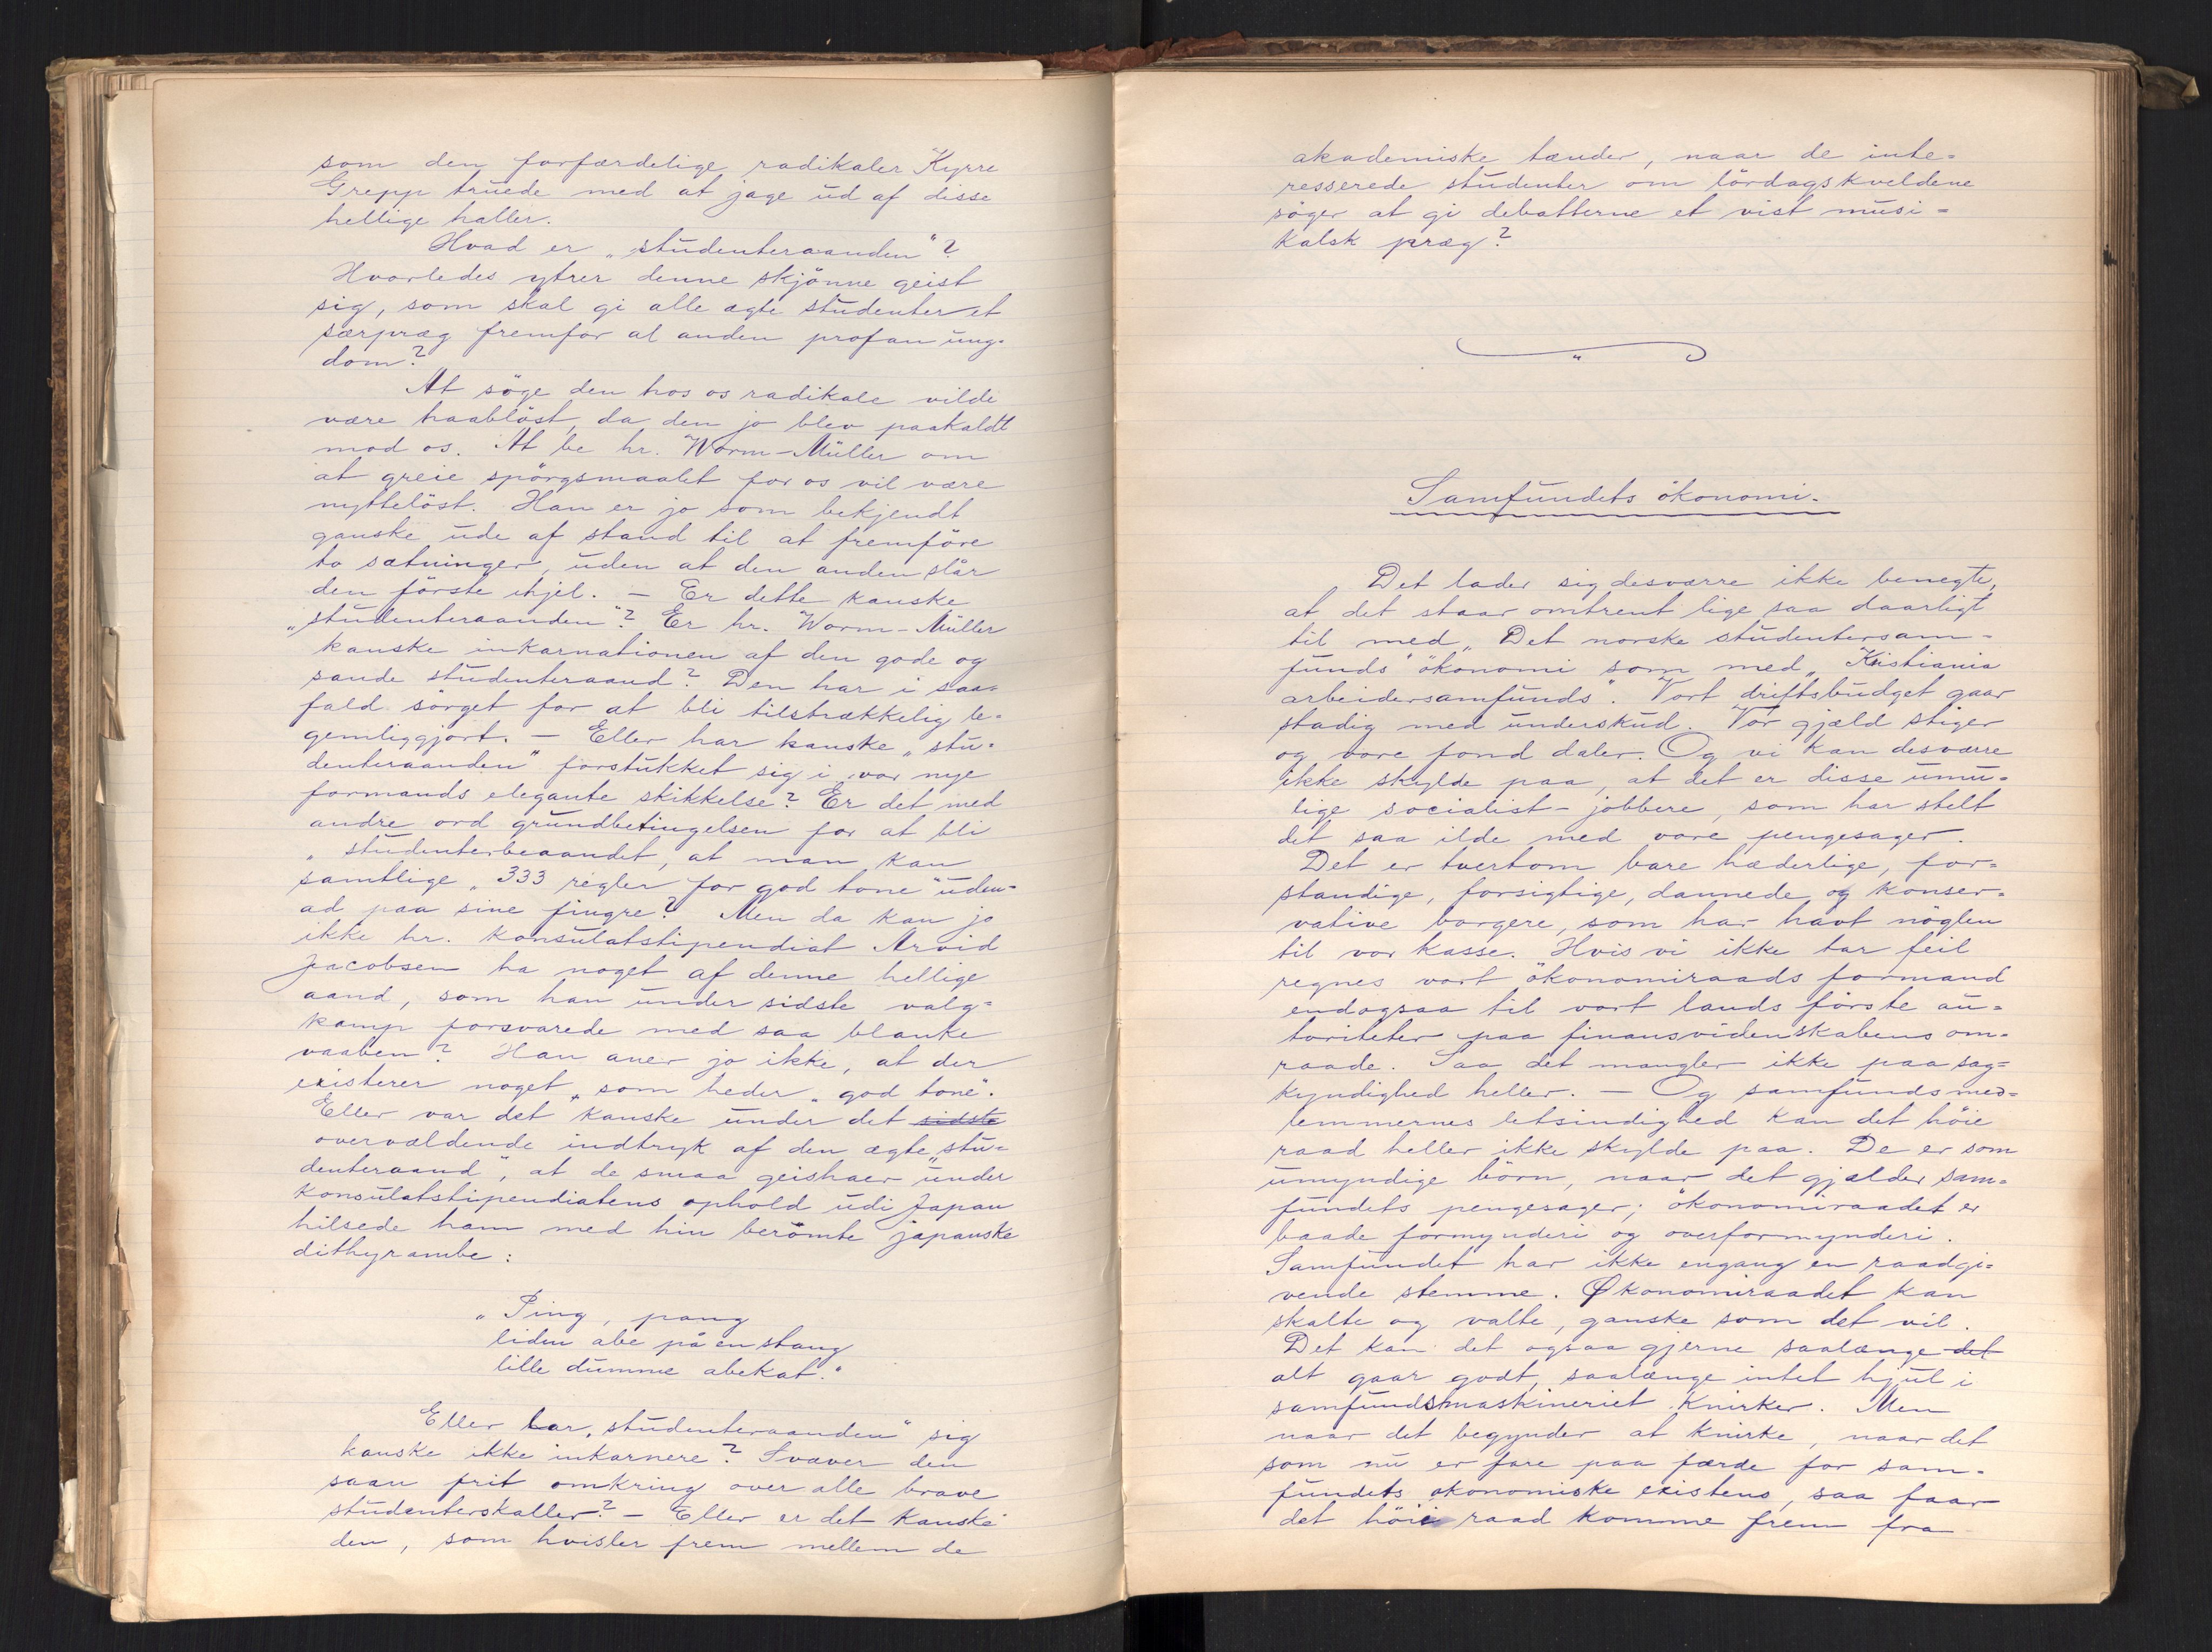 som den forfærdelige radikaler Kyrre
Grepp truede med at jage ud af disse
hellige haller.
Hvad er „studenteraanden"?
Hvorledes ytrer denne skjönne geist
sig, som skal gi alle ægte studenter et
særpræg fremfor al anden profan ung-
dom?
At söge den hos os radikale vilde
være haablöst, da den jo blev paakaldt
mod os. At be hr. Worm-Müller om
at greie spörgsmaalet for os vil være
nyttelöst. Han er jo som bekjendt
ganske ude af stand til at fremföre
to sætninger, uden at den anden slår
den förste ihjel. — Er dette kanske
„studenteraanden"? Er hr. Worm-Müller
kanske inkarnationen af den gode og
sande studenteraand? Den har i saa-
fald sörget for at bli tilstrækkelig le-
gemliggjort. — Eller har kanske „stu-
denteraanden" forstukket sig i vor nye
formands elegante skikkelse? Er det med
andre ord grundbetingelsen for at bli
„studenterbeaandet, at man kan
samtlige „333 regler for god tone" uden-
ad paa sine fingre? Men da kan jo
ikke hr. konsulatstipendiat Arvid
Jacobsen ha noget af denne hellige
aand, som han under sidste valg-
kamp forsvarede med saa blanke
vaaben? Han aner jo ikke, at der
existerer noget, som heder „god tone".
Eller var det kanske under det sidste
overvældende indtryk af den ægte „stu-
denteraand", at de smaa geishaer under
konsulatstipendiatens ophold udi Japan
hilsede ham med hin berömte japanske
dithyrambe:
„Ping, pang
liden abe på en stang
lille dumme abekat."
Eller lar „studenteraanden" sig
kanske ikke inkarnere? Svæver den
saan frit omkring over alle brave
studenterskaller? — Eller er det kanske
den, som hvisler frem mellem de
akademiske tænder, naar de inte-
resserede studenter om lördagskveldene
söger at gi debatterne et vist musi-
kalsk præg?
Samfundets ökonomi.
Det lader sig desværre ikke benegte,
at det staar omtrent lige saa daarligt
til med „Det norske studentersam-
funds" ökonomi som med „Kristiania
arbeidersamfunds". Vort driftsbudget gaar
stadig med underskud. Vor gjæld stiger
og vore fond daler. Og vi kan desværre
ikke skylde paa, at det er disse umu-
lige socialist-jobbere, som har stelt
det saa ilde med vore pengesager.
Det er tvertom bare hæderlige, for-
standige, forsigtige, dannede og konser-
vative borgere, som har havt nöglen
til vor kasse. Hvis vi ikke tar feil
regnes vort ökonomiraads formand
endogsaa til vort lands förste au-
toriteter paa finansvidenskabens om-
raade. Saa det mangler ikke paa sag-
kyndighed heller. — Og samfundsmed-
lemmernes letsindighed kan det höie
raad heller ikke skylde paa. De er som
umyndige börn, naar det gjælder sam-
fundets pengesager; ökonomiraadet er
baade formynderi og overformynderi.
Samfundet har ikke engang en raadgi-
vende stemme. Økonomiraadet kan
skalte og valte, ganske som det vil.
Det kan det ogsaa gjerne saalænge det
alt gaar godt, saalænge intet hjul i
samfundsmaskineriet knirker. Men
naar det begynder at knirke, naar det
som nu er fare paa færde for sam-
fundets økonomiske existens, saa faar
det höie raad komme frem fra